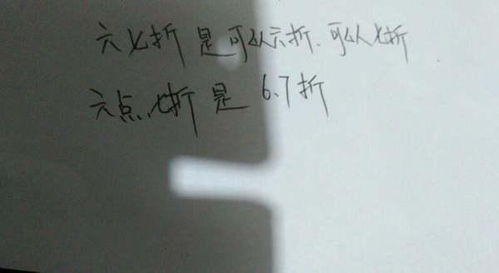 六七折是可以六折.可以七折
六点七折是6.7折